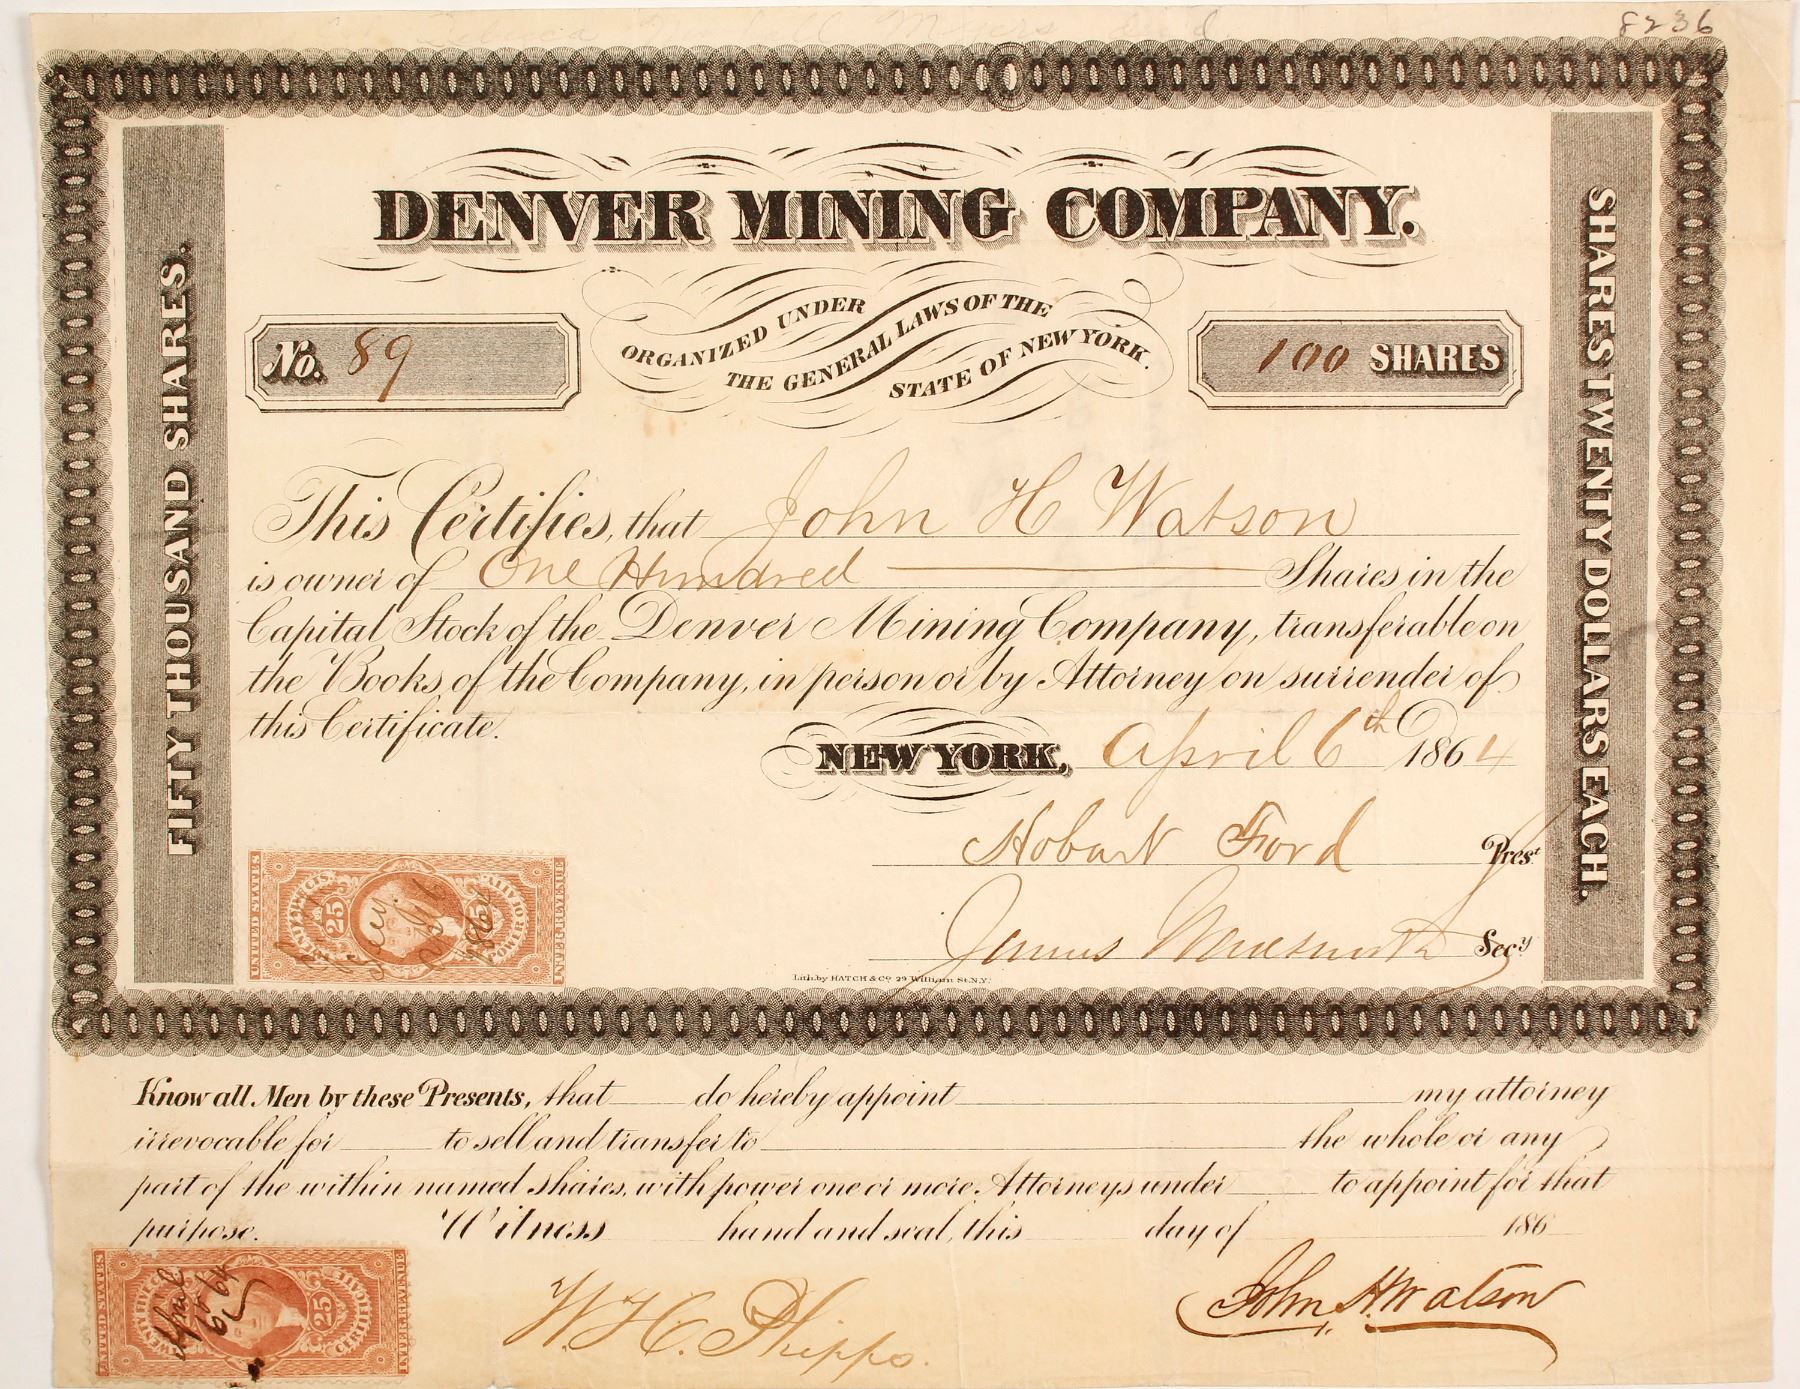 8236
DENVER MINING COMPANY.
ORGANIZED UNDER
THE GENERAL LAWS OF THE
STATE OF NEW YORK.
No. 89
100 SHARES
FIFTY THOUSAND SHARES.
SHARES TWENTY DOLLARS EACH.
This Certifies, that John H Watson
is owner of One Hundred Shares in the
Capital Stock of the Denver Mining Company, transferable on
the Books of the Company, in person or by Attorney on surrender of
this Certificate.
NEW YORK, April 6th 1864
Hobart Ford Prest
James Secy
Lith. by HATCH & Co 29 William St. N.Y.
UNITED STATES
25
POWER OF ATTY
INTER. REVENUE
Know all Men by these Presents, that do hereby appoint my attorney
irrevocable for to sell and transfer to the whole or any
part of the within named shares, with power one or more Attorneys under to appoint for that
purpose. Witness hand and seal, this day of 186
UNITED STATES
TWENTY FIVE C
25
CERTIFICATE
INTER. REVENUE
April
6 64
W. H. C. Phipps.
John H. Watson